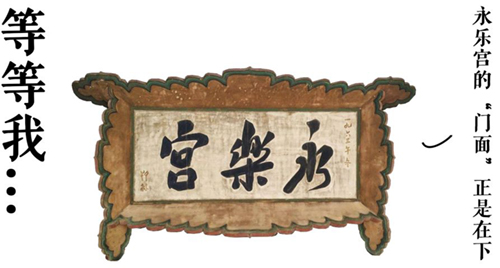 等等我…
永樂宮
永乐宫的“门面”正是在下